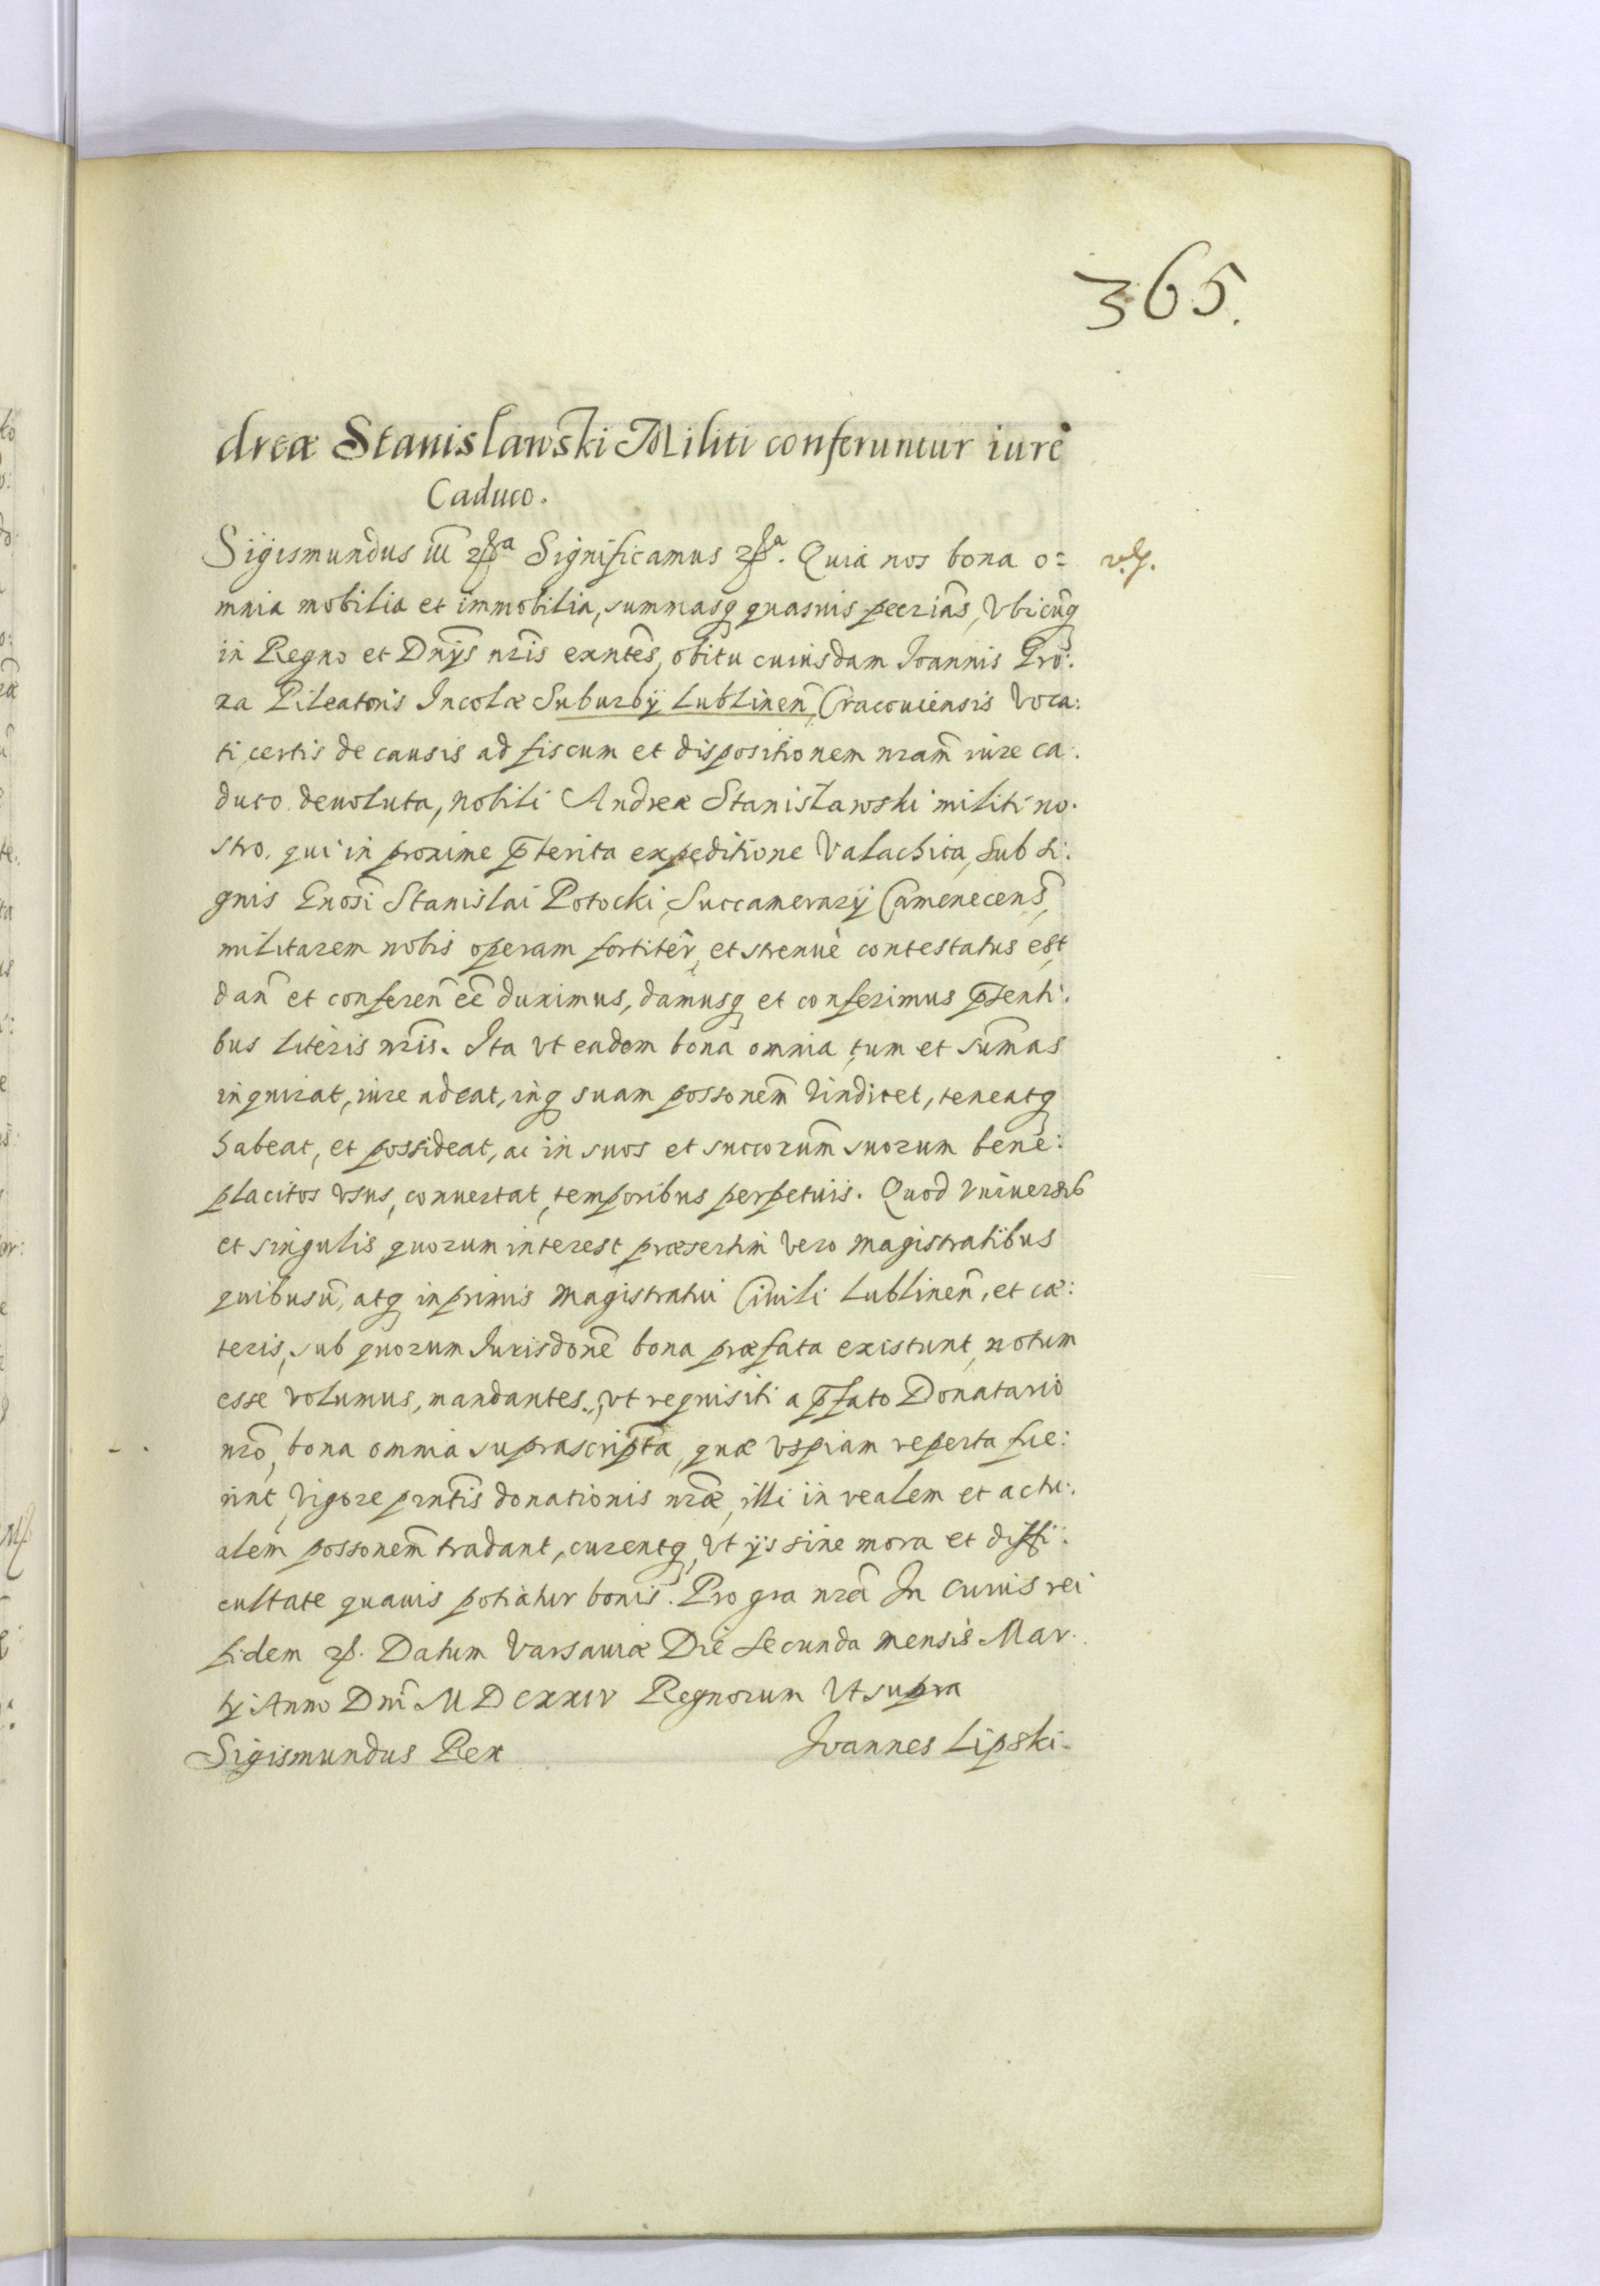 365.
dreæ Stanislawski Militi conferuntur iure
Caduco.
Sigismundus iii Significamus Quia nos bona o=
mnia mobilia et immobilia, summasq quasuis pecrias, Vbicuq
in Regno et Dnijs nris exntes, obitu cuiusdam Joannis Gro:
za Pileatoris Incolæ Suburbij Lublinen Cracouiensis Voca:
ti, certis de causis ad fiscum et dispositionem nram iure ca:
duco deuoluta, nobili Andreæ Stanislawski militi no:
stro. qui in proxime pterita expeditione Valachica, sub si:
gnis Gnosi Stanislai Potocki, Succamerarij Camenecens,
militarem nobis operam fortiter, et strenuè contestatus est,
dan et conferen eē duximus, damusq et conferimus pñsenti:
bus literis nris. Ita vt eadem bona omnia tum et sumas
inquirat, iure adeat, inq suam possonem vindicet, teneatq
habeat, et possideat, ac in suos et succorum suorum bene:
placitos vsus, conuertat, temporibus perpetuis. Quod vniuersis
et singulis quorum interest præsertim vero Magistratibus
quibusu, atq inprimis Magistratui Ciuili Lublinen, et cæ:
teris, sub quorum Jurisdone bona præfata existunt, notum
esse volumus, mandantes, vt requisiti a pfato Donatario
nro, bona omnia suprascripta, quæ vspiam reperta fue:
rint, vigore prntis donationis nræ, illi in realem et actu:
alem possonem tradant, curentq, vt ijs sine mora et diffi:
cultate quauis potiatur bonis. Pro gra nra In cuius rei
fidem Datum Varsauiæ Die secunda mensis Mar:
tij Anno Dni MDCXXIV Regnorum Vt supra
Sigismundus Rex Joannes Lipski